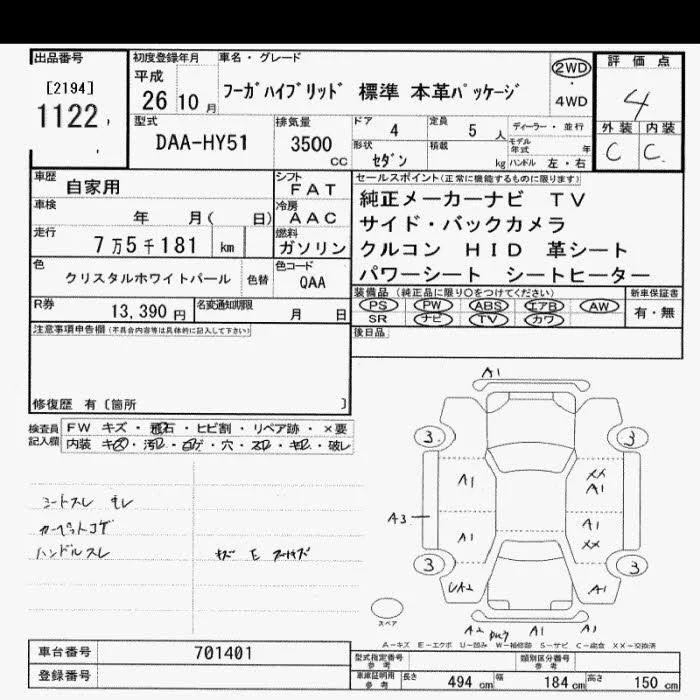 出品番号
[2194]
1122
初度登録年月
平成
26 10 月
車名・グレード
フーガハイブリッド 標準 本革パッケージ
2WD
・
4WD
評価点
4
外装 内装
C C
型式
DAA-HY51
排気量
3500
cc
ドア 4
定員 5 人
ディーラー・並行
形状 セダン
積載 kg
モデル年式 年
ハンドル 左・右
車歴 自家用
シフト
FAT
車検 年 月( 日)
冷房
AAC
走行 7万5千181 km
燃料
ガソリン
色 クリスタルホワイトパール
色替
色コード
QAA
R券 13,390 円
名変通知期限 月 日
セールスポイント(正常に機能するものに限ります)
純正メーカーナビ TV
サイド・バックカメラ
クルコン HID 革シート
パワーシート シートヒーター
装備品 (純正品に限り○をつけてください)
PS PW ABS エアB AW
SR ナビ TV カワ
新車保証書
有・無
後日品
注意事項申告欄(不具合内容等は具体的に記入して下さい)
修復歴 有〔箇所 〕
検査員記入欄
FW キズ・飛石・ヒビ割・リペア跡・×要
内装 キズ・汚レ・コゲ・穴・スレ・キレ・破レ
シートスレ モレ
カーペットコゲ
ハンドルスレ
キズ E
A1
3 3
A1
XX
A1
A3
A1
XX
A1
3 3
UA2
A1
A2
A1
A1
スペア
A-キズ E-エクボ U-凹み W-補修跡 S-サビ C-腐食 XX-交換済
車台番号 701401
登録番号
型式指定番号 参考
類別区分番号 参考
車庫証明用 参考
長さ 494 cm 幅 184 cm 高さ 150 cm